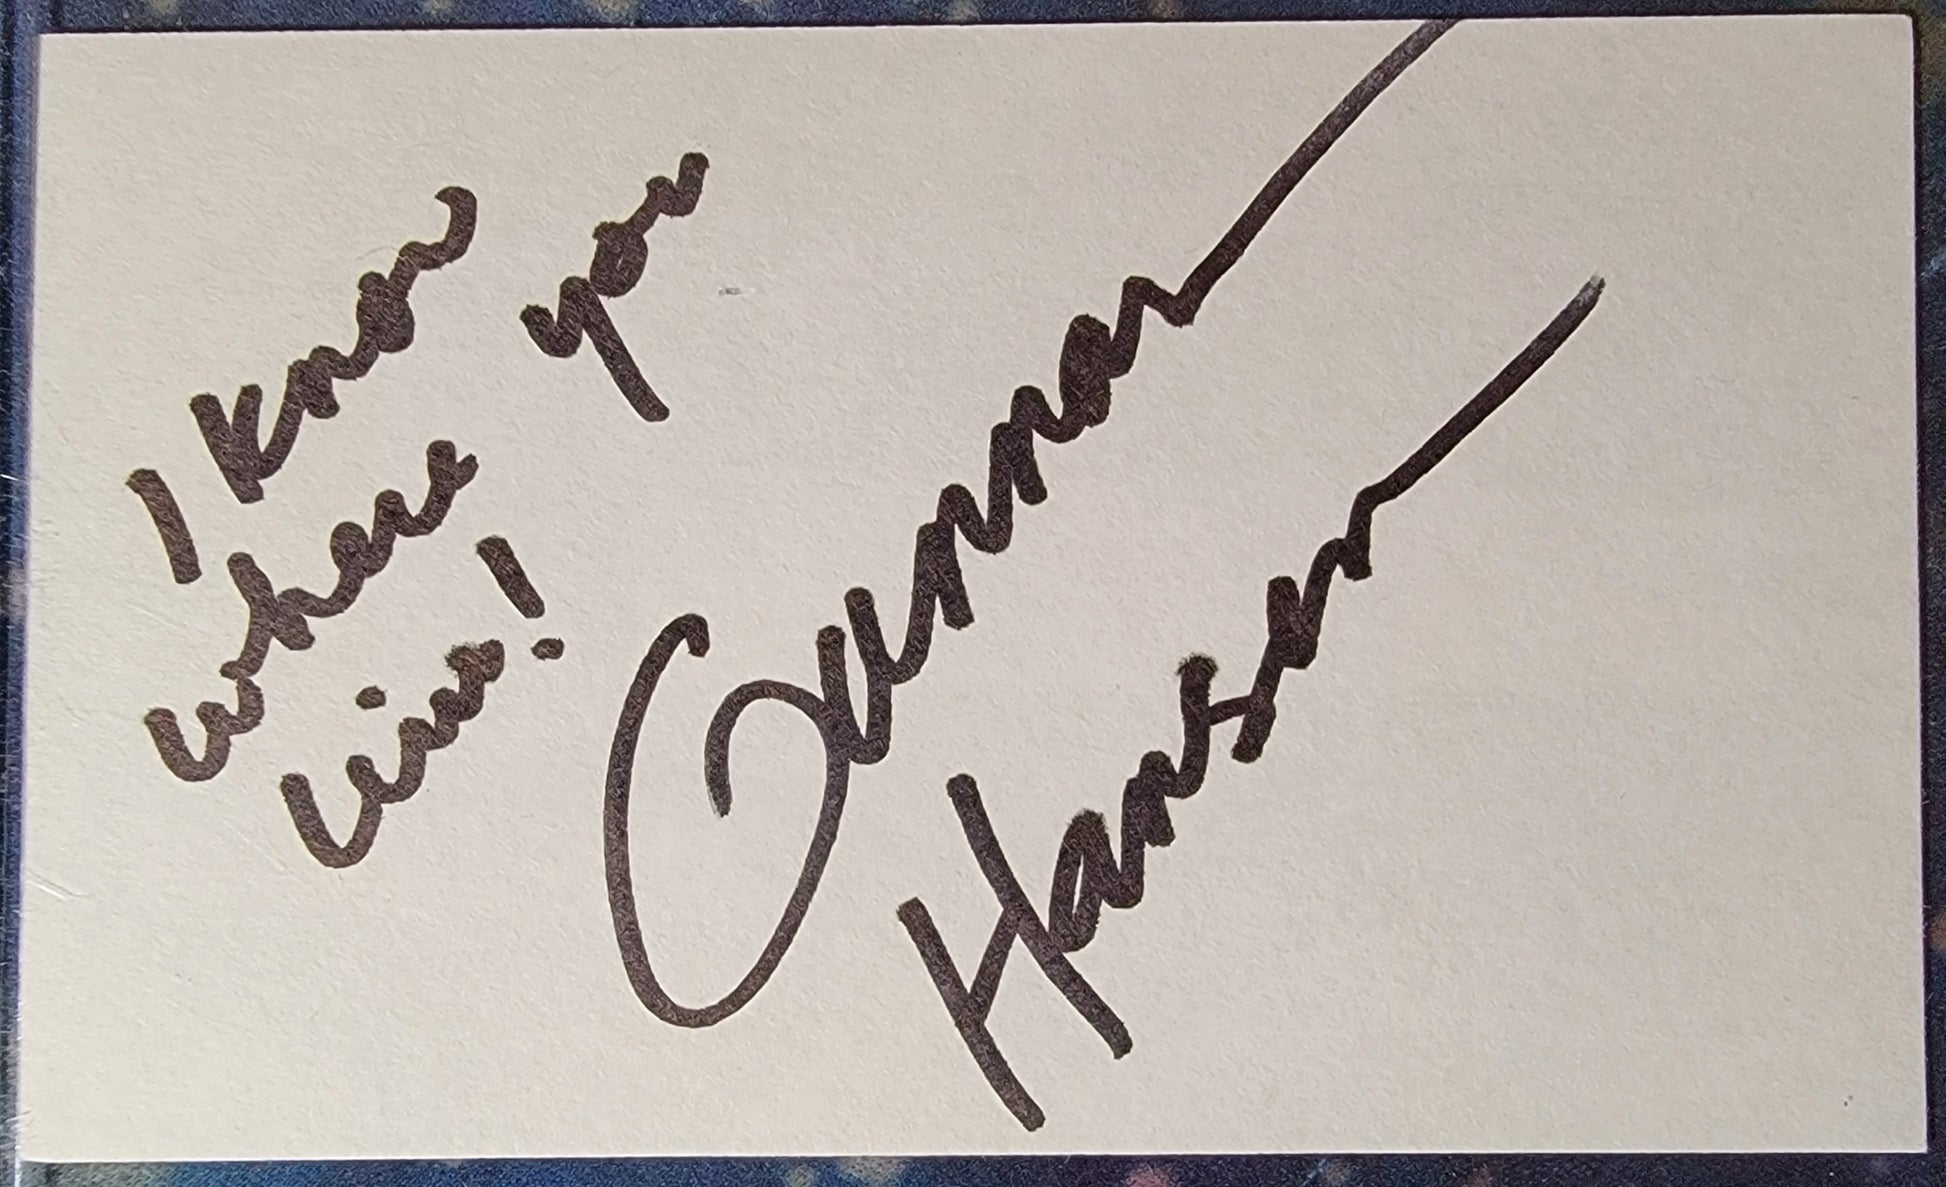 I know
where you
live!
Gunnar
Hansen